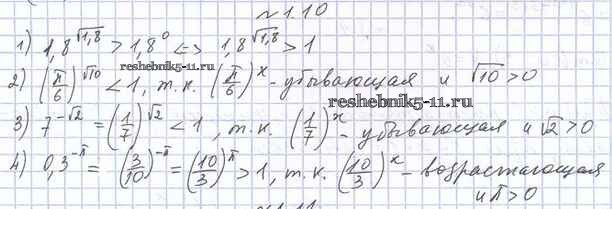 № 1.10
1) 1,8^√1,8 > 1,8^0 <=> 1,8^√1,8 > 1
reshebnik5-11.ru
2) (π/6)^√10 < 1, т.к. (π/6)^x - убывающая и √10 > 0
reshebnik5-11.ru
3) 7^-√2 = (1/7)^√2 < 1, т.к. (1/7)^x - убывающая и √2 > 0
4) 0,3^-π = (3/10)^-π = (10/3)^π > 1, т.к. (10/3)^x - возрастающая
и π > 0